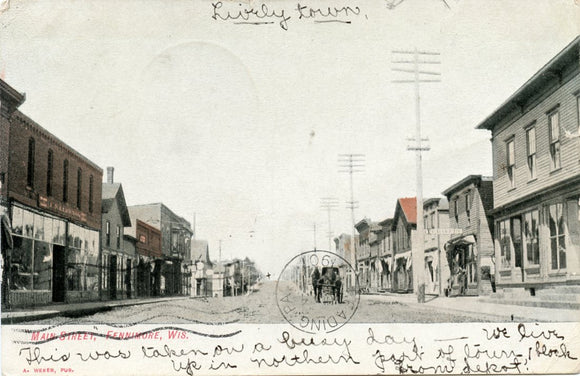 Lively town.
READING, PA.
190
MAIN STREET, FENNIMORE, WIS.
This was taken on a busy day — we live
up in northern part of town, 1 block
from depot.
A. WEBER, PUB.